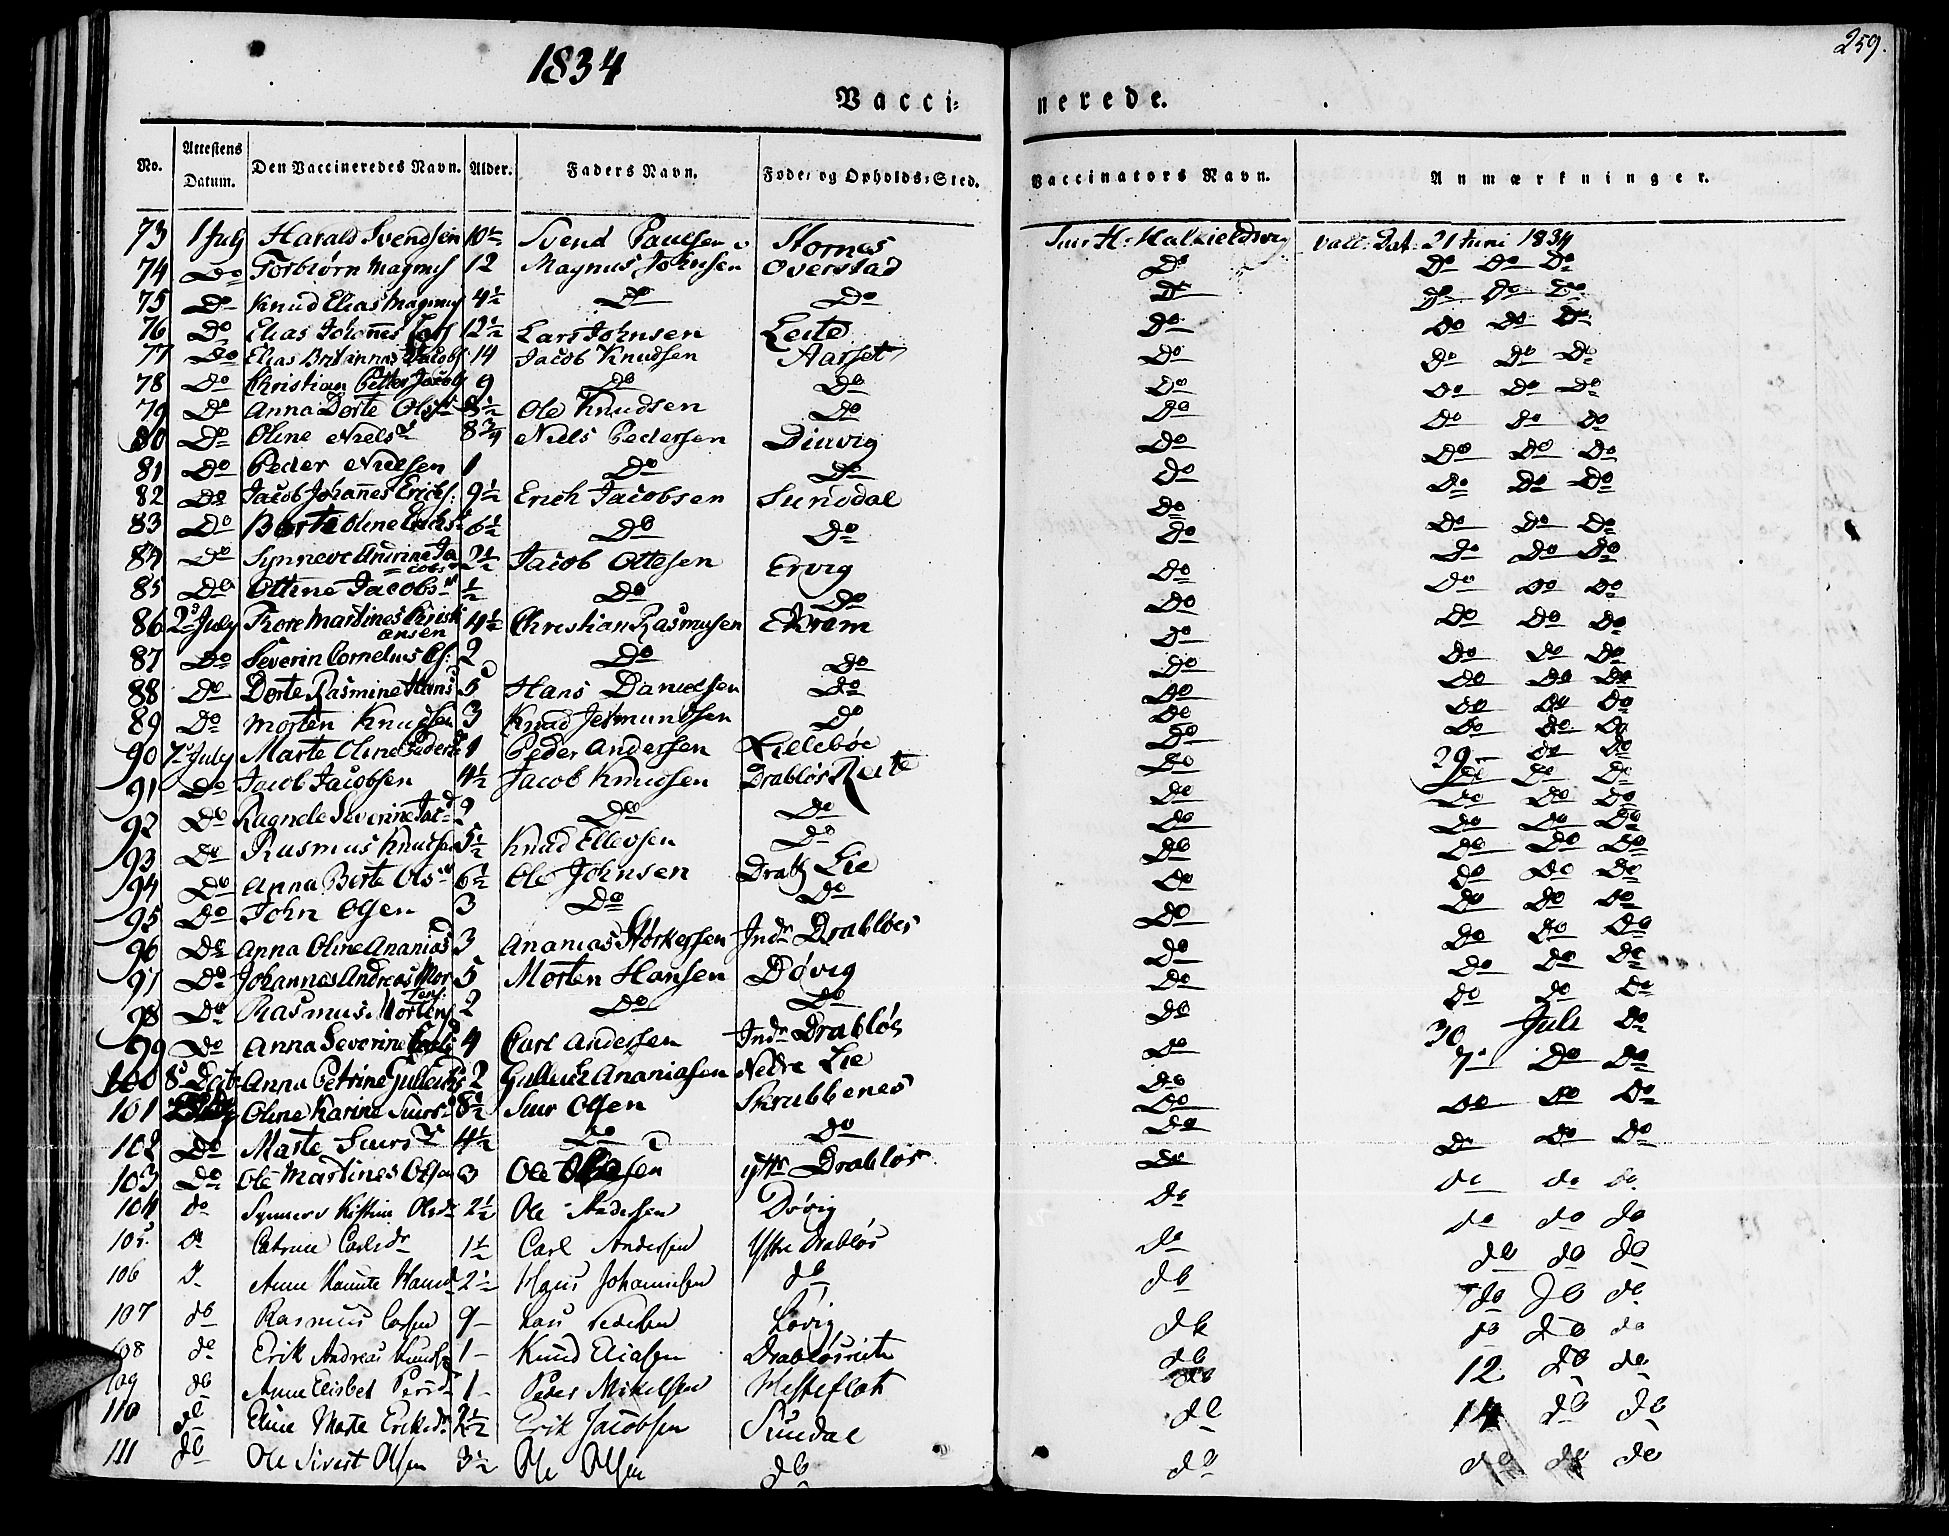 1834
259.
Vacci=
nerede.
No. Attestens Datum. Den Vaccineredes Navn. Alder. Faders Navn. Føde= og Opholds=Sted. Vaccinators Navn. Anmærkninger.
73 1 July Harald Svendsen 10½ Svend Paulsen Stornes Siur H: Vacc: Dat: 21 Juni 1834
74 Do Torbiørn Magnus 12 Magnus Johnsen Overstad Do Do Do Do
75 Do Knud Elias Magnus 4½ Do Do Do Do Do Do
76 Do Elias Johannes Lars 12½ Lars Johnsen Leite Do Do Do Do
77 Do Elias Jacobs: 14 Jacob Knudsen Aarset Do Do Do Do
78 Do Christian Petter Jacobs 9 Do Do Do Do Do Do
79 Do Anna Dorte Olsd 8½ Ole Knudsen Do Do Do Do Do
80 Do Oline Nielsd 8¾ Niels Pedersen Diuvig Do Do Do Do
81 Do Peder Nielsen 1 Do Do Do Do Do Do
82 Do Jacob Johannes Erichs: 9½ Erich Jacobsen Sundal Do Do Do Do
83 Do Berte Oline Erichsd 6½ Do Do Do Do Do Do
84 Do Synneve Andrine Jacobsd 2½ Jacob Ottesen Ervig Do Do Do Do
85 Do Ottine Jacobsd ½ Do Do Do Do Do Do
86 2 July Thore Martines Christiansen 4½ Christian Rasmusen Ekrem Do Do Do Do
87 Do Severin Cornelius Cs: 2 Do Do Do Do Do Do
88 Do Dorte Rasmine Hansd 5 Hans Danielsen Do Do Do Do Do
89 Do Morten Knudsen 3 Knud Jetmundsen Do Do Do Do Do
90 7 July Marte Oline Pedersd 1 Peder Andersen Lillebøe Do 29 Do Do
91 Do Jacob Jacobsen 4½ Jacob Knudsen Drabløs Reite Do Do Do Do
92 Do Ragnele Severine Jacd 2 Do Do Do Do Do Do
93 Do Rasmus Knudsen 5½ Knud Ellevsen Do Do Do Do Do
94 Do Anna Berte Olsd 6½ Ole Johnsen Drabl Lie Do Do Do Do
95 Do John Olsen 3 Do Do Do Do Do Do
96 Do Anna Oline Ananiasd 3 Ananias Størkersen Indr Drabløes Do Do Do Do
97 Do Johannes Andreas Mortens: 5 Morten Hansen Døvig Do Do Do Do
98 Do Rasmus Mortens 2 Do Do Do Do Do Do
99 Do Anna Severine Carlsd 4 Carl Andersen Indr Drabløs Do 30 Juli Do
100 8 Anna Petrine 2 Ananiasen Nedre Lie Do 7 Do Do
101 Oline Karine Siursd 8½ Siur Olsen Skrubbenes Do Do Do Do
102 Do Marte Siursd 4½ Do Do Do Do Do Do
103 Do Ole Martines Olsen 3 Ole Ytt Drabløs Do Do Do Do
104 do Synnev Kistine Olsdr 2½ Ole Andersen Døvig do do do do
105 do Catrine Carlsdr 1½ Carl Andersen Yttre Drabløs do do do do
106 d Anne Hansd 2½ Hans Johannesen do do do do do
107 do Rasmus Larsen 9 Lars Pedersen Løvig do do do do
108 do Erik Andreas Knuds 1 Knud Eliasen Drabløsreite do 12 do do
109 do Anne Elisbet Pedd 1 Peder Mikelsen Hesteflot do
110 do Eline Marte Eriksd. 2½ Erik Jacobsen Sundal do 14 do do
111 do Ole Sivert Olsen 3½ Ole Olsen do do do do do